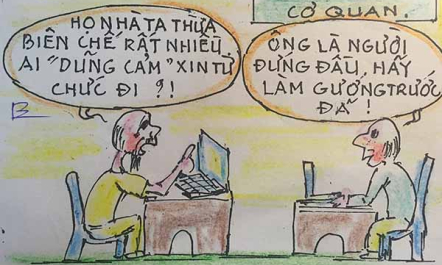 CƠ QUAN.
HỌ NHÀ TA THỪA
BIÊN CHẾ RẤT NHIỀU
AI "DŨNG CẢM" XIN TỪ
CHỨC ĐI ?!
ÔNG LÀ NGƯỜI
ĐỨNG ĐẦU, HÃY
LÀM GƯƠNG TRƯỚC
ĐÃ !